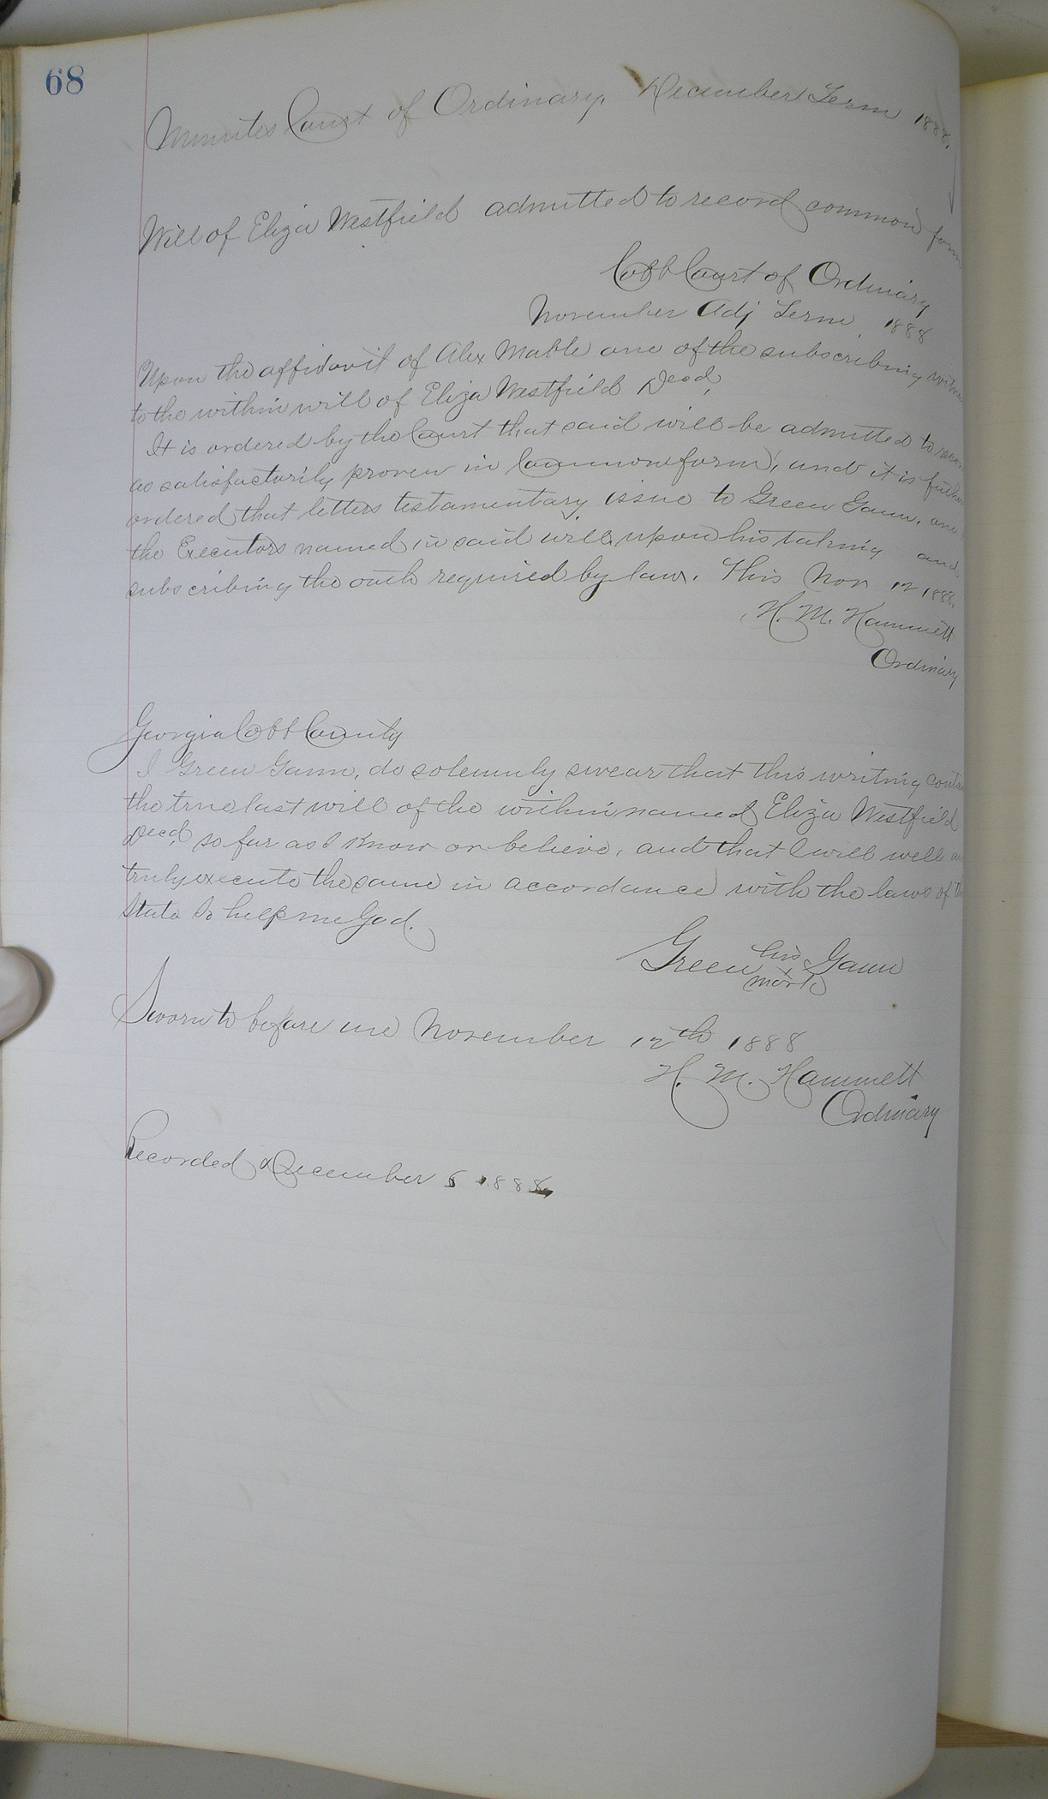 68
Minutes Court of Ordinary. December Term 1888.
Will of Eliza Westfield admitted to record common form
Cobb Court of Ordinary
November Adj Term 1888
Upon the affidavit of Alex Mable one of the subscribing
to the within will of Eliza Westfield Decd,
It is ordered by the Court that said will be admitted to
as satisfactorily proven in common form, and it is
ordered that letters testamentary issue to Green Gann, one
the Executors named in said will, upon his taking and
subscribing the oath required by law. This Nov 12 1888.
H. M. Hammett
Ordinary
Georgia Cobb County
I Green Gann, do solemnly swear that this writing
the true last will of the within named Eliza Westfield
Decd, so far as I know or believe, and that I will well
truly execute the same in accordance with the laws of
State So help me God.
Green his Gann
x
mark
Sworn to before me November 12th 1888
H. M. Hammett
Ordinary
Recorded December 6 1888,